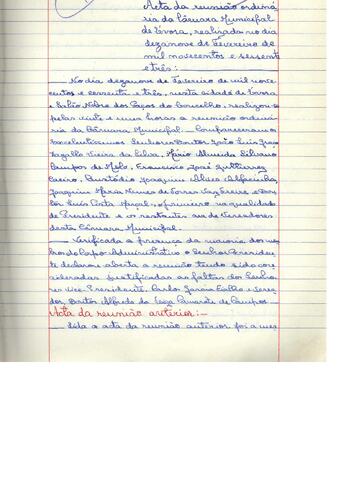 Acta da reunião ordiná
ria da Câmara Municipal
de Évora, realizada no dia
dezanove de Fevereiro de
mil novecentos e sessenta
e três:
— No dia dezanove de Fevereiro de mil nove
centos e sessenta e três, nesta cidade de Évora
e Salão Nobre dos Paços do Concelho, realizou-se
pelas vinte e uma horas a reunião ordiná
ria da Câmara Municipal. Compareceram os
Excelentíssimos Senhores Doutor João Luis
Vieira da Silva, Mário Almeida Silvano
Campos de Melo, Francisco José Guttierrez
Caeiro, Custódio Joaquim Alves
Joaquim Maria Nunes de Torres Vaz Freire e Dou
tor Luis Costa o primeiro na qualidade
de Presidente e os restantes na de Vereadores
desta Câmara Municipal.
— Verificada a presença da maioria dos mem
bros do Corpo Administrativo o Senhor Presiden
te declarou aberta a reunião tendo sido con
sideradas justificadas as faltas dos Senho
res Vice-Presidente, Carlos Garcia Fialho e Verea
dor, Doutor Alfredo da Camarate de Campos.
Acta da reunião anterior:—
— Lida a acta da reunião anterior foi a mes